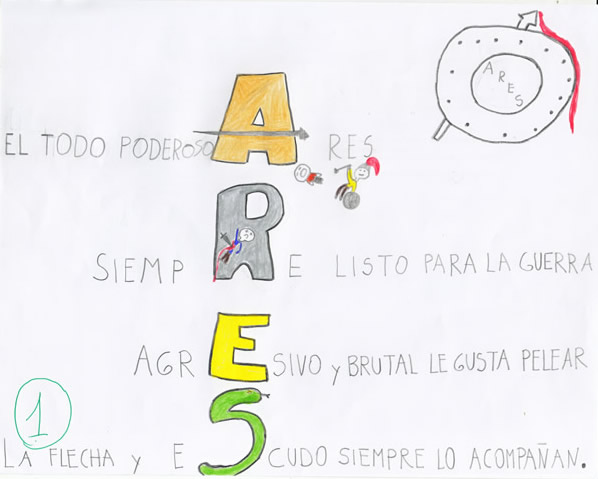 ARES
EL TODO PODEROSO ARES
SIEMPRE LISTO PARA LA GUERRA
AGRESIVO y BRUTAL LE GUSTA PELEAR
1
LA FLECHA y ESCUDO SIEMPRE LO ACOMPAÑAN.